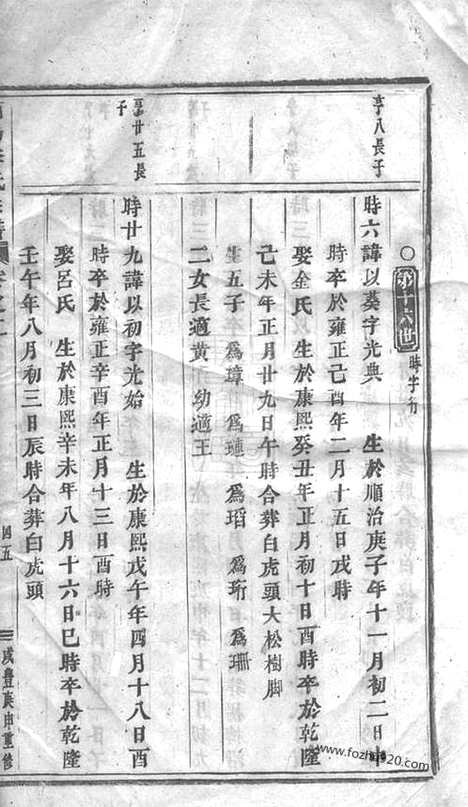 ○第十六世時字行
亨八長子
時六諱以葵字光典 生於順治庚子年十一月初二日申
時卒於雍正己酉年二月十五日戌時
娶金氏 生於康熙癸丑年正月初十日酉時卒於乾隆
己未年正月廿九日午時合葬白虎頭大松樹脚
生五子 為璋 為璉 為瑫 為珩 為珊
二女長適黃 幼適王
亨廿五長子
時廿九諱以初字光始 生於康熙戊午年四月十八日酉
時卒於雍正辛酉年正月十三日酉時
娶呂氏 生於康熙辛未年八月十六日巳時卒於乾隆
壬午年八月初三日辰時合葬白虎頭
四五
咸豐庚申重修
www.fozhu920.com